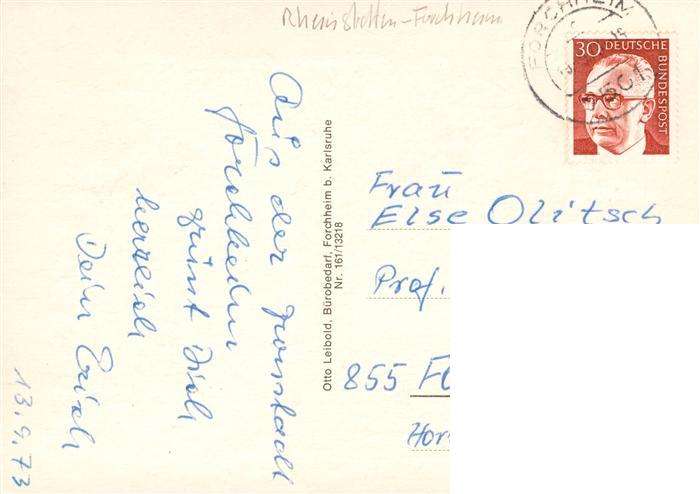 Rheinstetten-Forchheim
FORCHHEIM
30 DEUTSCHE
BUNDESPOST
Aus der
Forchheim
grüßt Dich
herzlich
Dein Erich
13.9.73
Otto Leibold, Bürobedarf, Forchheim b. Karlsruhe
Nr. 161/13218
Frau
Else Olitsch
Prof.
855 FO
Hor